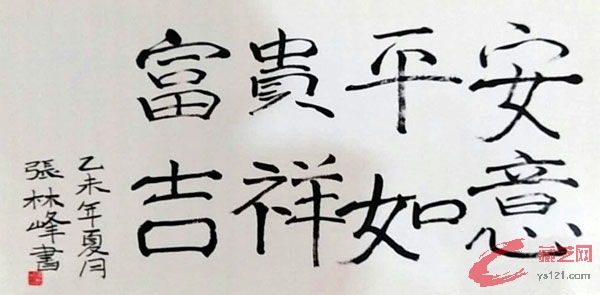 富貴平安
吉祥如意
乙未年夏月
張林峰書
藏艺网
ys121.com